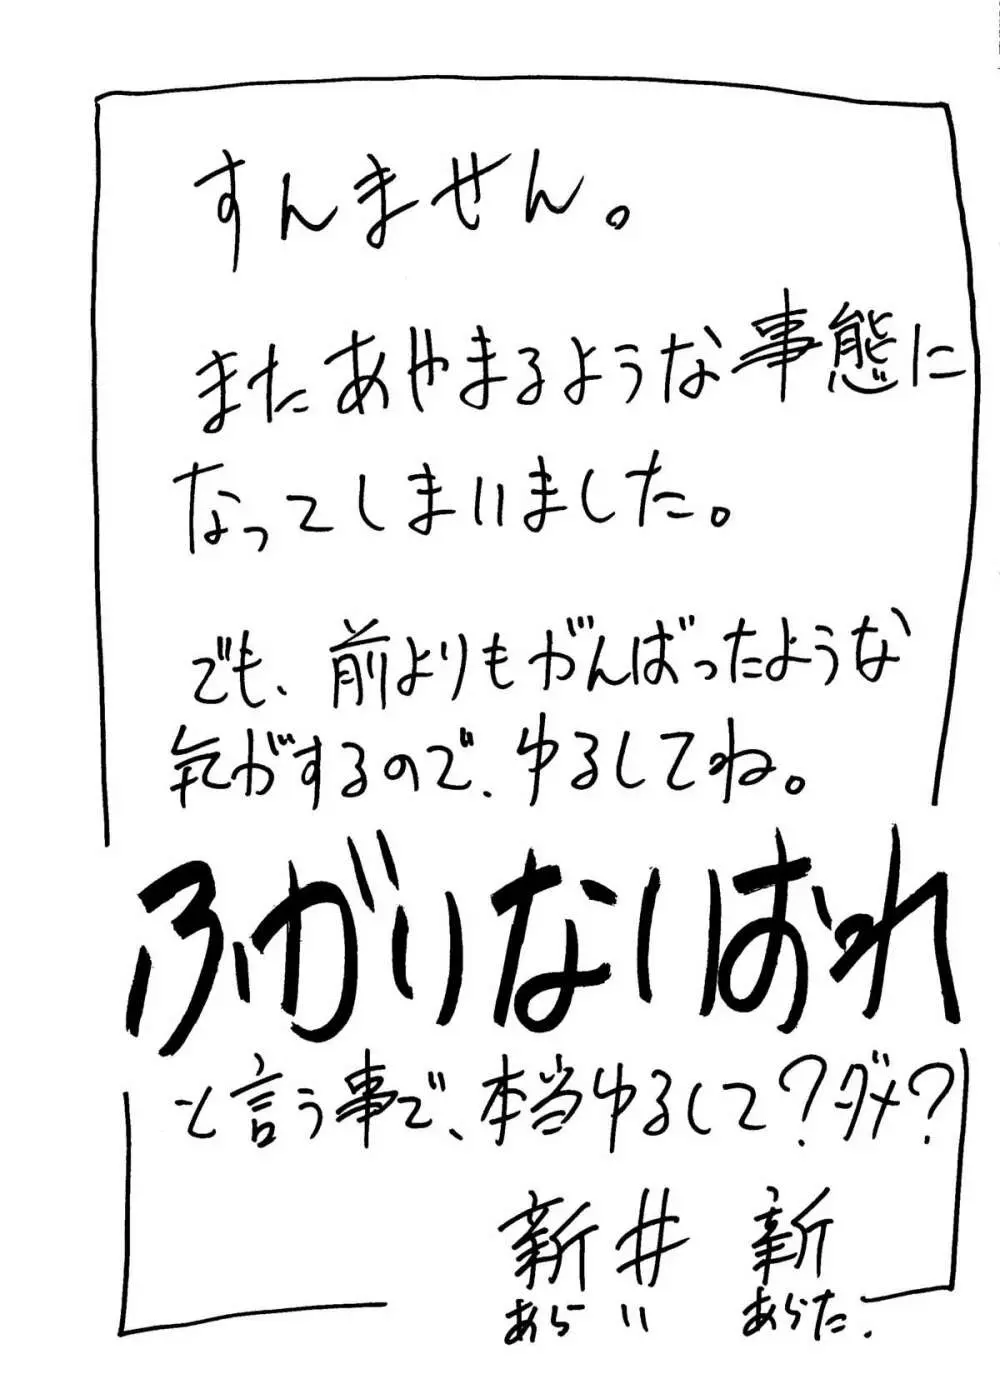 すんません。
またあやまるような事態に
なってしまいました。
でも、前よりもがんばったような
気がするので、ゆるしてね。
ふがいないおれ
と言う事で、本当ゆるして?ダメ?
新井 新
あらい あらた.